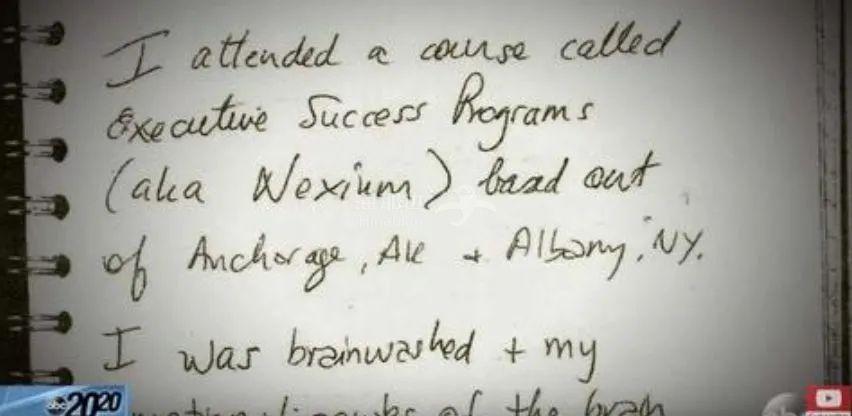 I attended a course called
Executive Success Programs
(aka Nexium) based out
of Anchorage, AK + Albany, NY.
I was brainwashed + my
of the brain
abc 2020